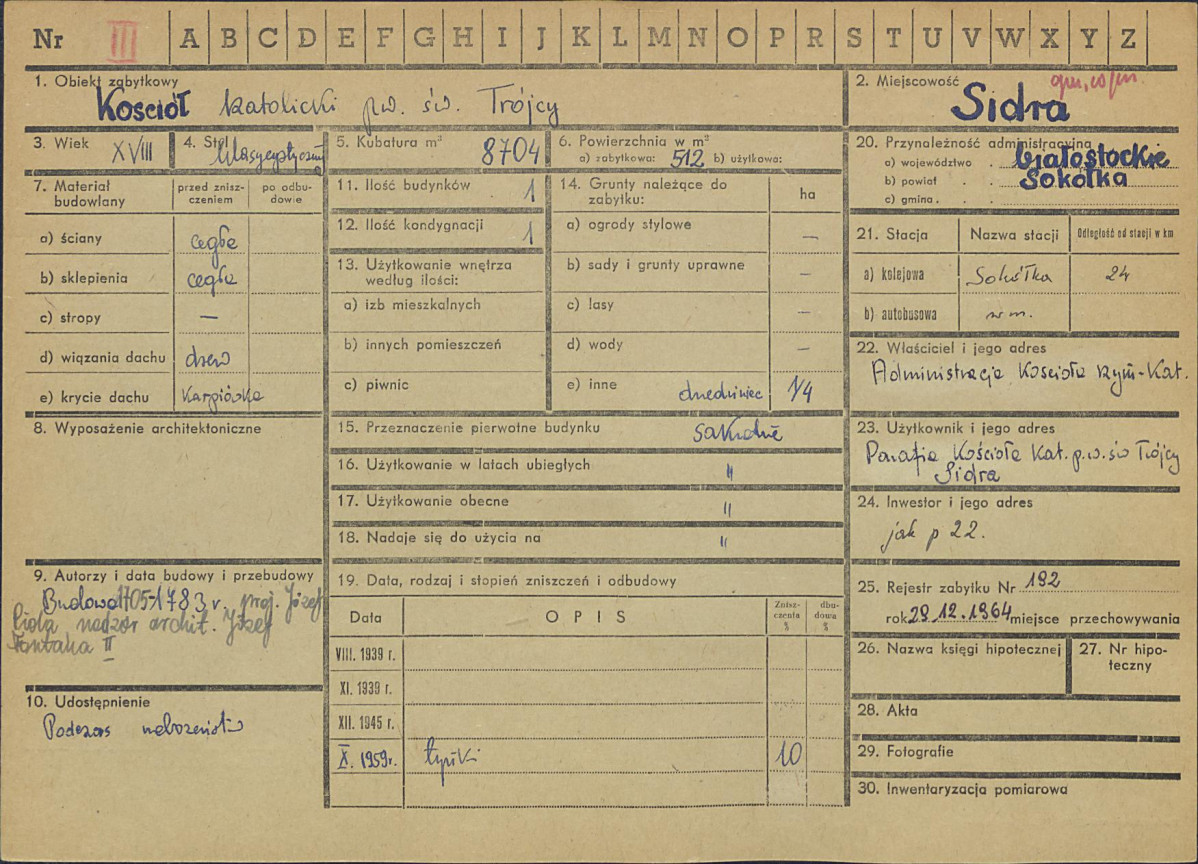 Nr III A B C D E F G H I J K L M N O P R S T U V W X Y Z
1. Obiekt zabytkowy
Kosciół katolicki p.w. św. Trójcy
2. Miejscowość
Sidra
3. Wiek XVIII
4. Styl klasycystyczny
5. Kubatura m³ 8704
6. Powierzchnia w m²
a) zabytkowa: 512 b) użytkowa:
20. Przynależność administracyjna
a) województwo białostockie
b) powiat Sokółka
c) gmina
7. Materiał budowlany
przed zniszczeniem
po odbudowie
a) ściany cegła
b) sklepienia cegła
c) stropy —
d) wiązania dachu drew
e) krycie dachu Karpiówka
8. Wyposażenie architektoniczne
9. Autorzy i data budowy i przebudowy
Budowa 1705-1783 r. proj. Józef
nadzór archit. Józef
Fontana II
10. Udostępnienie
Podczas nabożeństw
11. Ilość budynków 1
12. Ilość kondygnacji 1
13. Użytkowanie wnętrza
według ilości:
a) izb mieszkalnych
b) innych pomieszczeń
c) piwnic
14. Grunty należące do
zabytku:
ha
a) ogrody stylowe —
b) sady i grunty uprawne —
c) lasy —
d) wody —
e) inne dziedziniec 1/4
15. Przeznaczenie pierwotne budynku sakralne
16. Użytkowanie w latach ubiegłych "
17. Użytkowanie obecne "
18. Nadaje się do użycia na "
19. Data, rodzaj i stopień zniszczeń i odbudowy
Data
OPIS
Zniszczenia %
dbudowa %
VIII. 1939 r.
XI. 1939 r.
XII. 1945 r.
X. 1959 r. tynki 10
21. Stacja
Nazwa stacji
Odległość od stacji w km
a) kolejowa Sokółka 24
b) autobusowa w m.
22. Właściciel i jego adres
Administracja Kościoła rzym-Kat.
23. Użytkownik i jego adres
Parafia Kościoła Kat. p.w. św Trójcy
Sidra
24. Inwestor i jego adres
jak p 22.
25. Rejestr zabytku Nr 192
rok 29.12.1964 miejsce przechowywania
26. Nazwa księgi hipotecznej
27. Nr hipoteczny
28. Akta
29. Fotografie
30. Inwentaryzacja pomiarowa